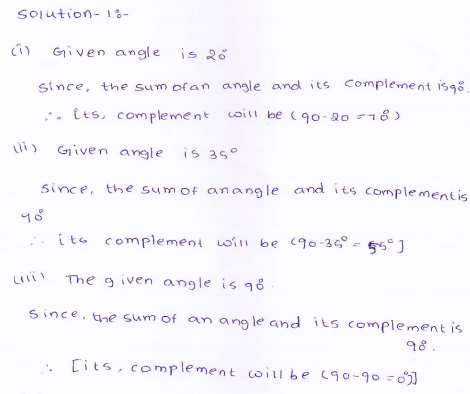 Solution-1:-
(i) Given angle is 20°
Since, the sum of an angle and its complement is 90°.
∴ Its, complement will be (90-20 = 70°)
(ii) Given angle is 35°
Since, the sum of an angle and its complement is
90°
∴ its complement will be (90-35° = 55°]
(iii) The given angle is 90°.
Since, the sum of an angle and its complement is
90°.
∴ [its, complement will be (90-90 = 0°)]